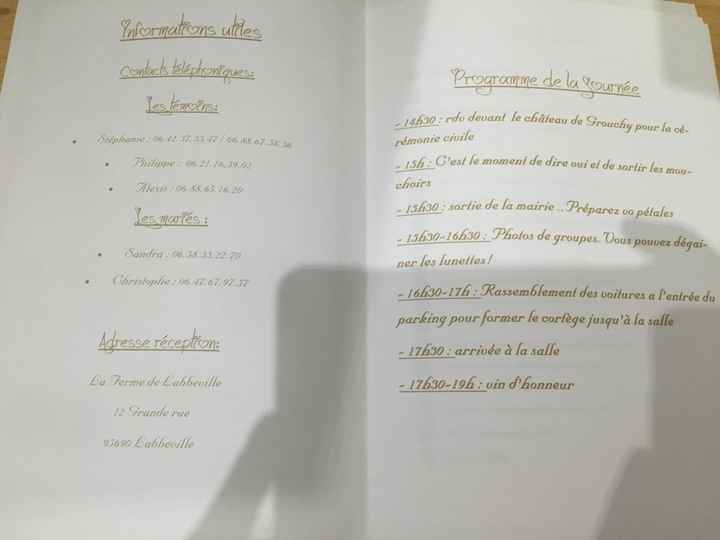 Informations utiles
Contacts téléphoniques:
Les témoins:
Stéphanie : 06.42.37.33.47 / 06.88.67.38.36
Philippe : 06.21.16.39.02
Alexis : 06.88.65.16.20
Les mariés :
Sandra : 06.38.33.22.70
Christophe : 06.47.67.97.37
Adresse réception:
La Ferme de Labbeville
12 Grande rue
95690 Labbeville
Programme de la Journée
- 14h30 : rdv devant le château de Grouchy pour la cé-
rémonie civile
- 15h : C'est le moment de dire oui et de sortir les mou-
choirs
- 15h30 : sortie de la mairie .. Préparez vo pétales
- 15h30-16h30 : Photos de groupes. Vous pouvez dégai-
ner les lunettes !
- 16h30-17h : Rassemblement des voitures a l'entrée du
parking pour former le cortège jusqu'à la salle
- 17h30 : arrivée à la salle
- 17h30-19h : vin d'honneur